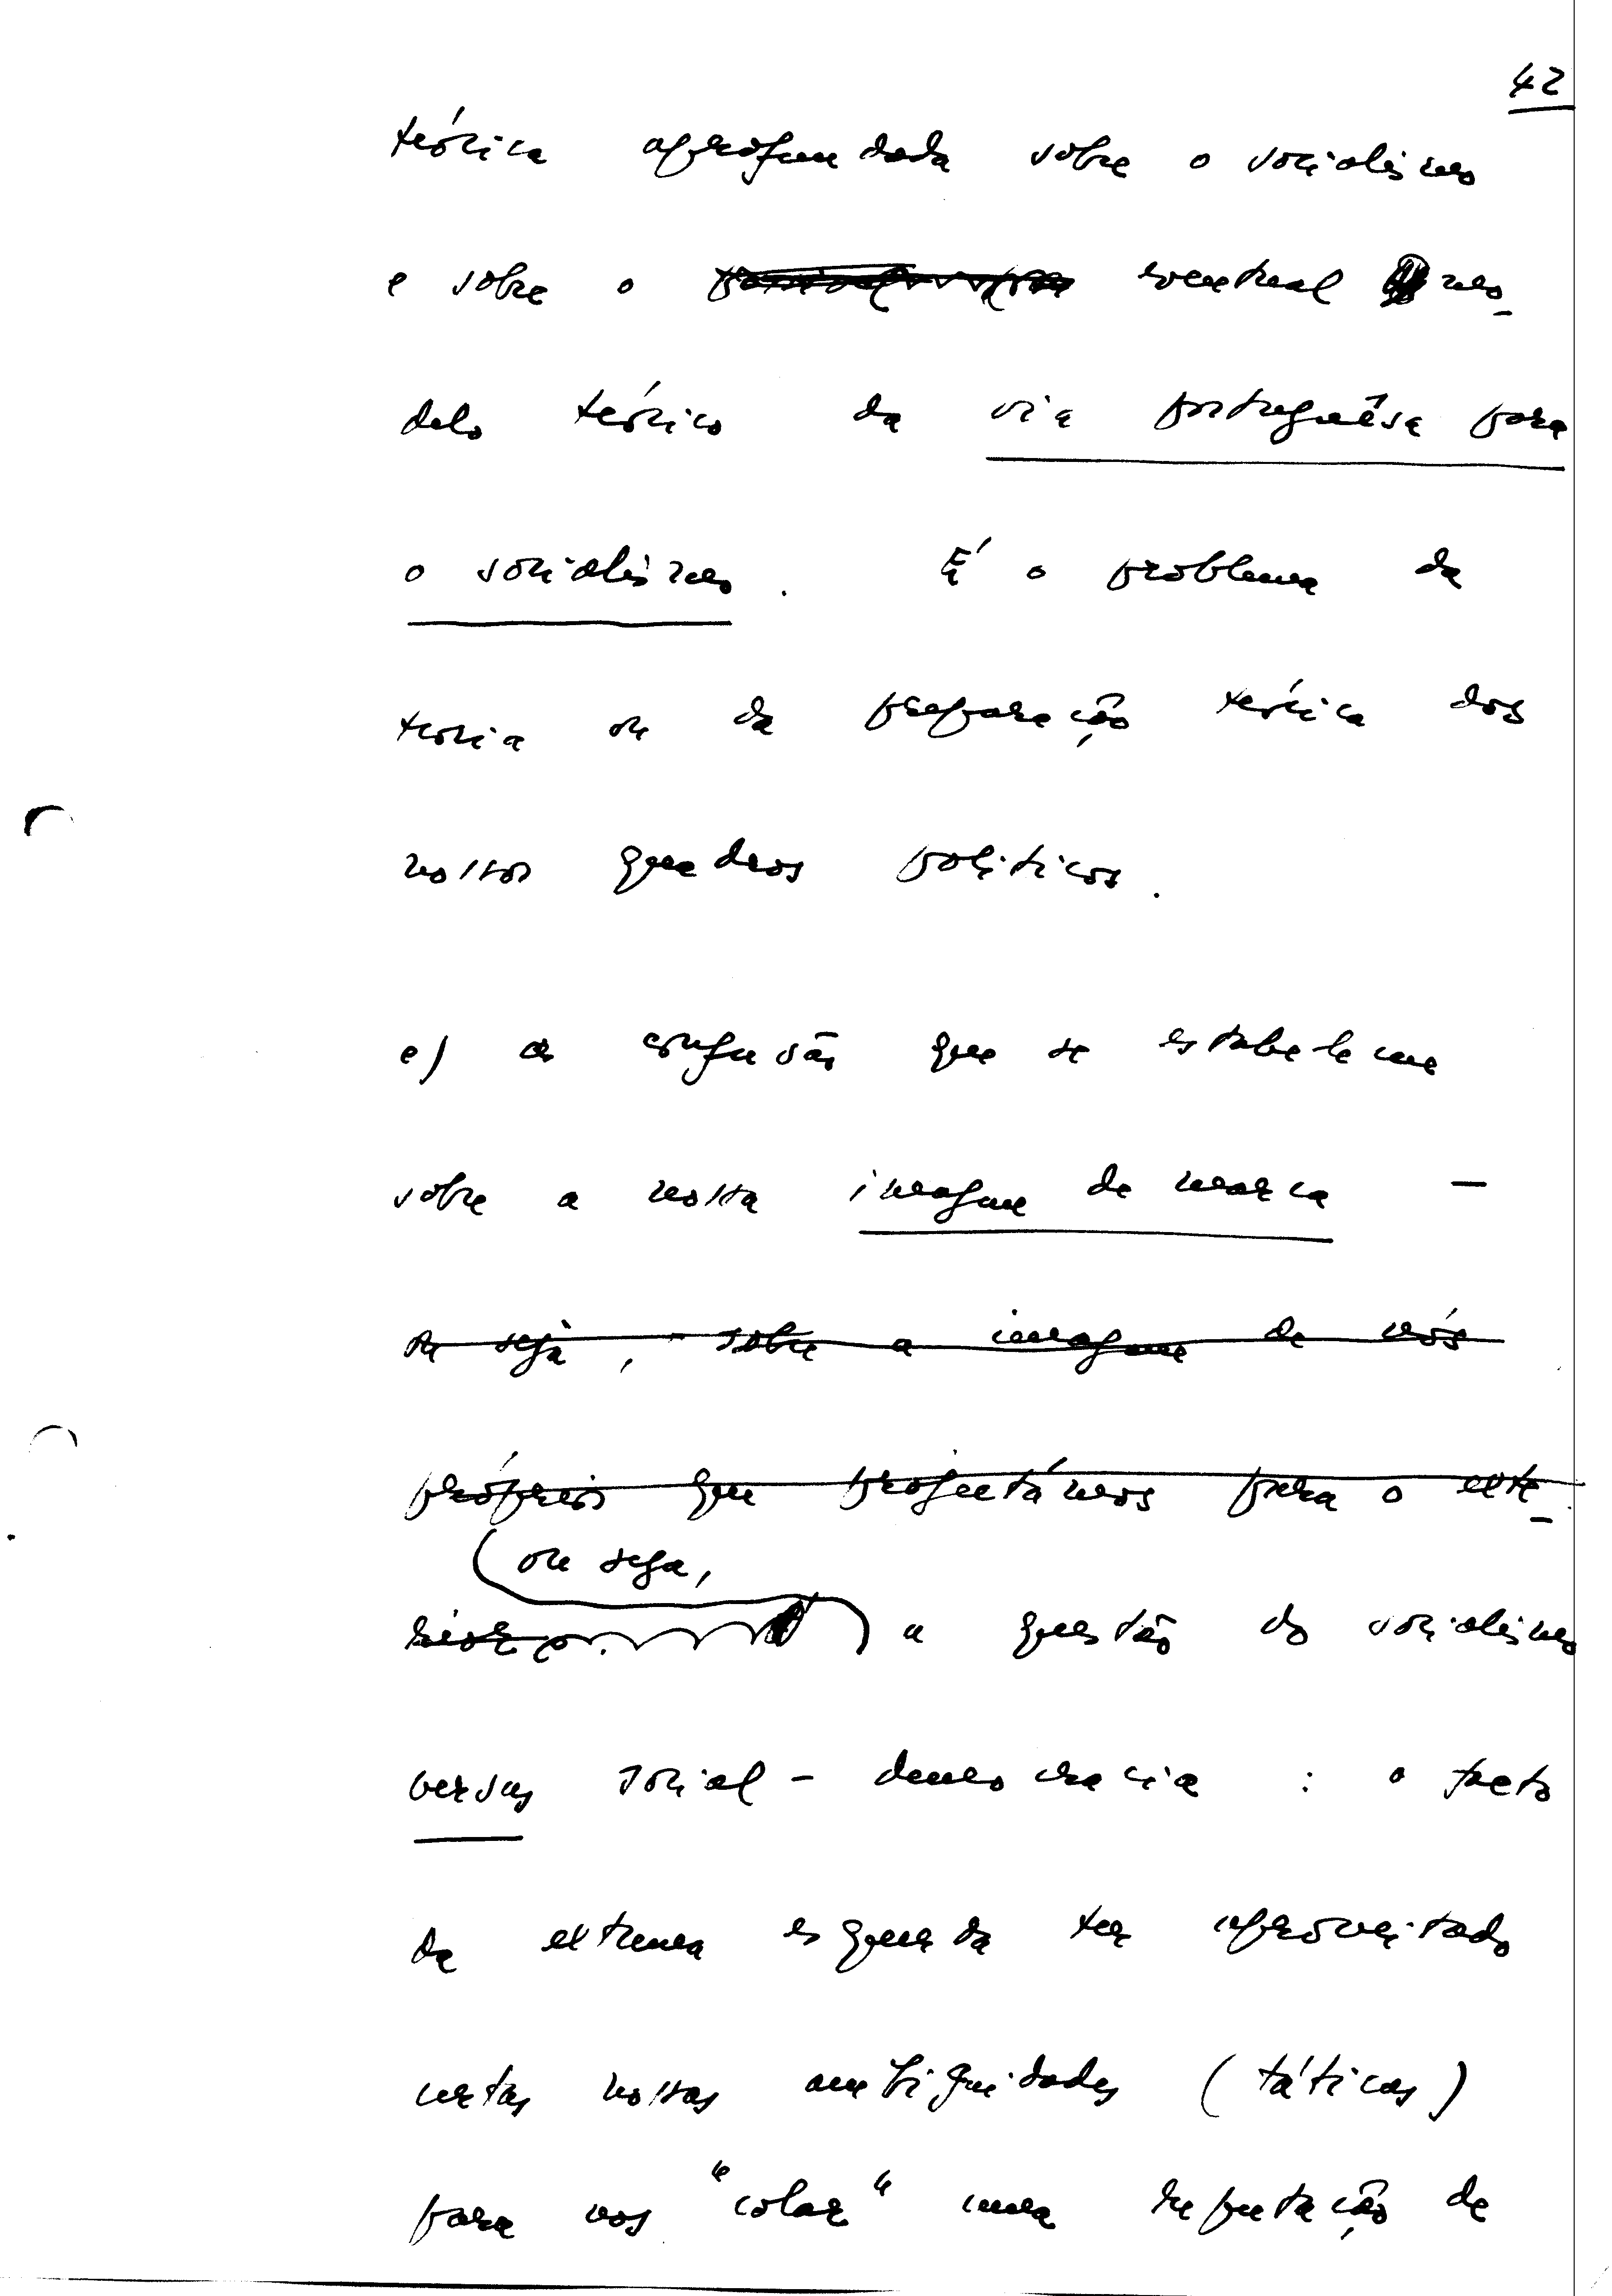 42
teórica aprofundada sobre o socialismo
e sobre o eventual mo-
delo teórico da via portuguêŝa para
o socialismo. É o problema da
teoria ou da preparação teórica dos
nossos quadros políticos.
e) a confusão que se estabeleceu
sobre a nossa imagem de marca –
ou seja, sobre a imagem de nós
próprios que projectámos para o exte-
(ou seja,
rior ) a questão do socialismo
versus social-democracia : o facto
da extrema esquerda ter aproveitado
certas nossas ambiguidades (táticas)
para nos "colar" uma reputação de